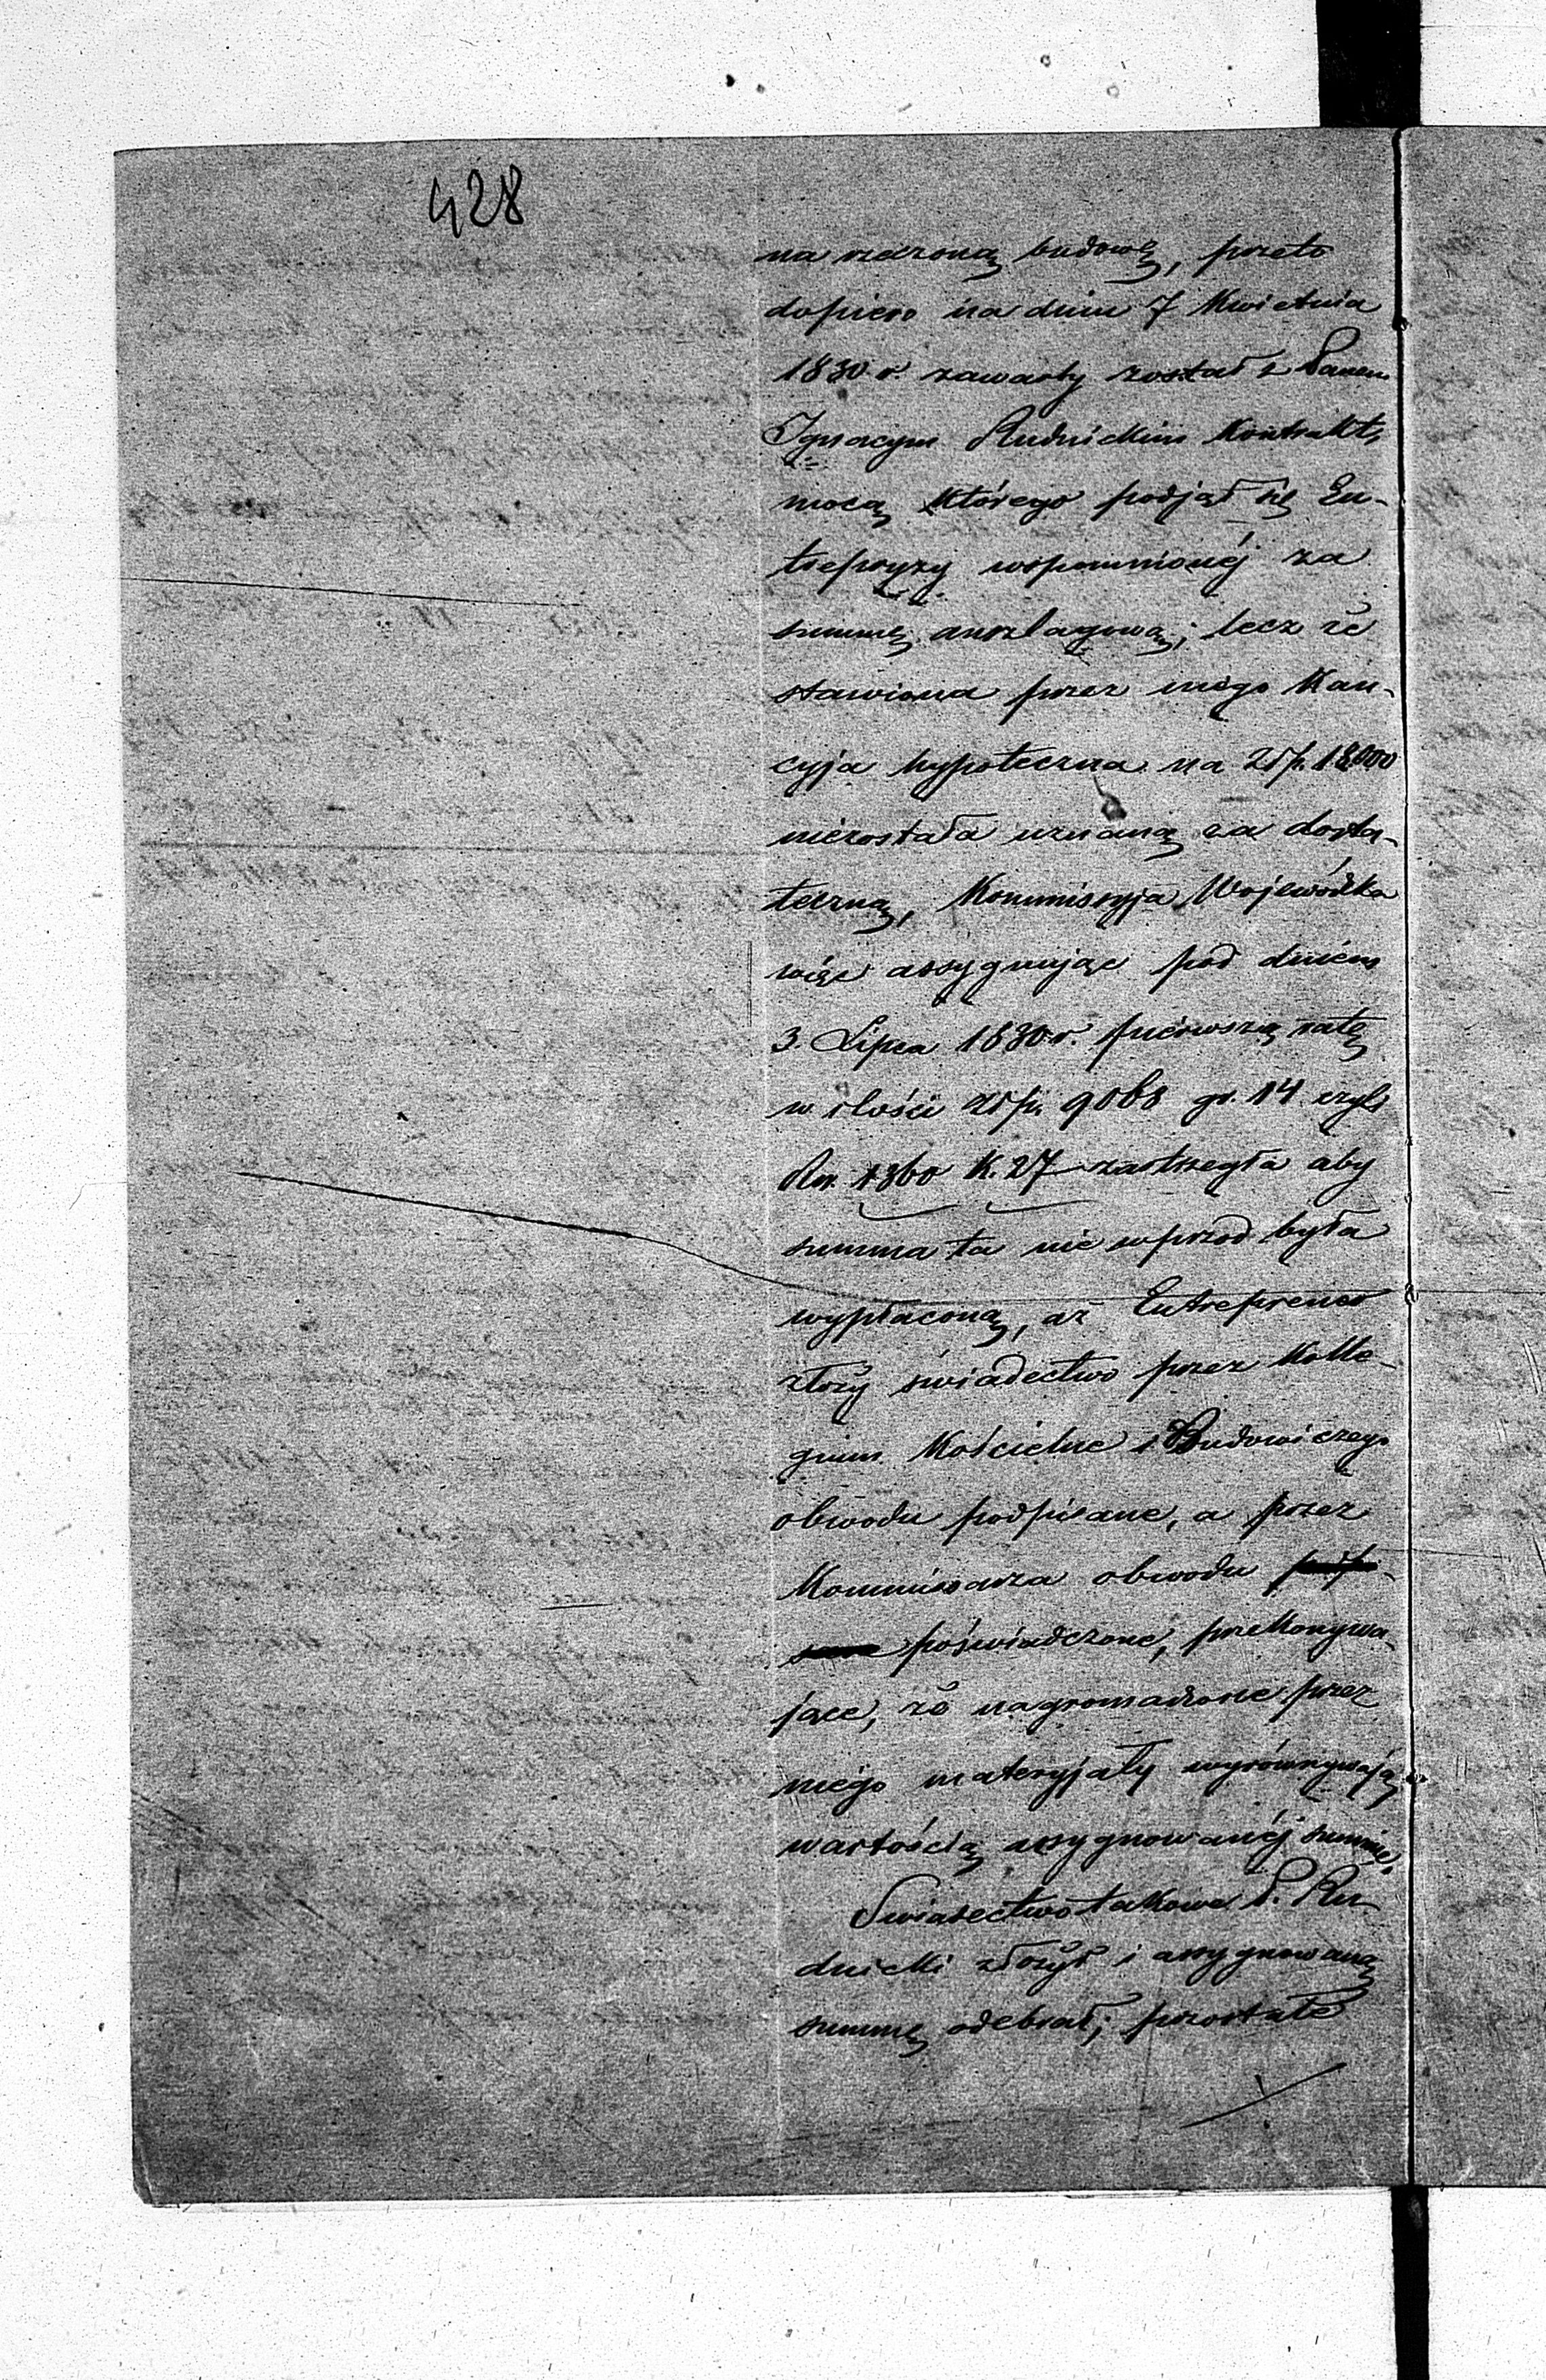 428
na rzeczoną budowę, przeto
dopiero na dniu 7 Kwietnia
1830 r. zawarty został z Panem
Ignacym Rudnickim Kontrakt,
mocą którego podjął się En-
trepryzy wspomnionéj za
summę anszlagową; lecz że
stawiona przez niego Kau-
cyja hypoteczna na Złp. 18000
niezostała uznaną za dosta-
teczną, Kommissyja Wojewódzka
więc assygnując pod dniem
3. Lipca 1830 r. pierwszą ratę
w ilości Złp. 9068 gr. 14 czyli
Rsr. 1360 K. 27 zastrzegła aby
summa ta nie wprzód była
wypłaconą, aż Entreprener
złoży świadectwo przez Kolle-
gium Kościelne i Budowiczego
obwodu podpisane, a przez
Kommissarza obwodu
poświadczone, przekonywa-
jące, że nagromadzone przez
niego materyjały wyrównywają
wartością assygnowanéj summie.
Swiadectwo takowe P. Ru-
dnicki złożył i assygnowaną
summę odebrał; pozostałe